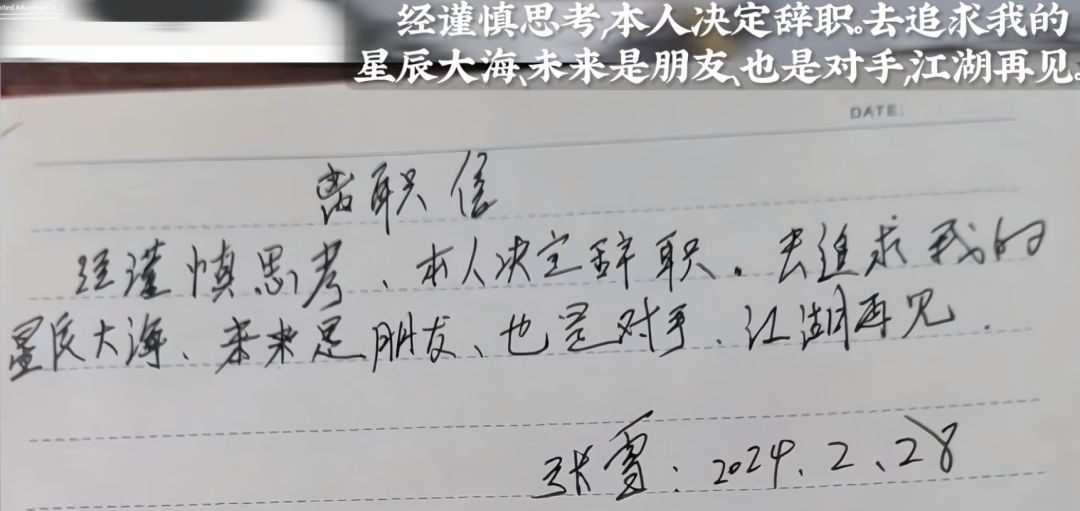 ited Adver
经谨慎思考,本人决定辞职。去追求我的
星辰大海、未来是朋友、也是对手,江湖再见。
DATE:
离职信
经谨慎思考、本人决定辞职。去追求我的
星辰大海、未来是朋友、也是对手.江湖再见.
张雪:2024.2、28